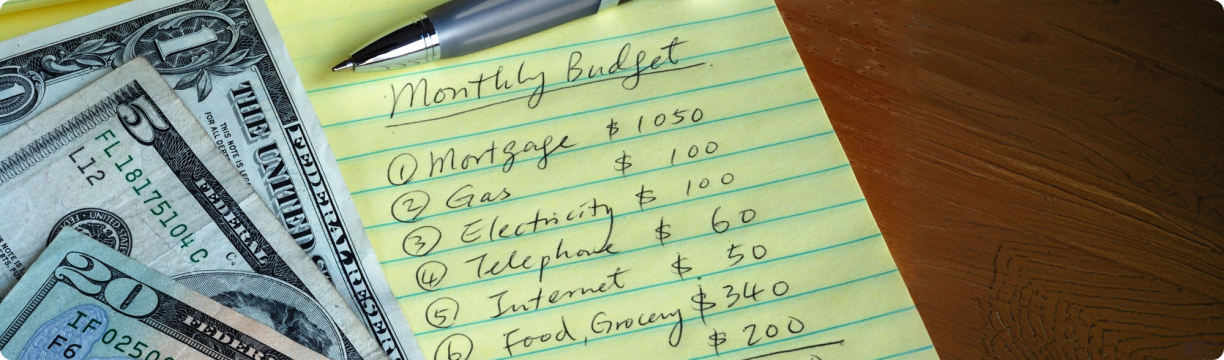 Monthly Budget
① Mortgage $ 1050
② Gas $ 100
③ Electricity $ 100
④ Telephone $ 60
⑤ Internet $ 50
⑥ Food, Grocery $340
$ 200
1
THE UNITED S
THIS NOTE IS LEG
FOR ALL DEBTS
FEDERAL RESERV
5
FL18175104C
L12
FEDERAL
UNITED STATES
20
IF 0250
F6
FEDERAL